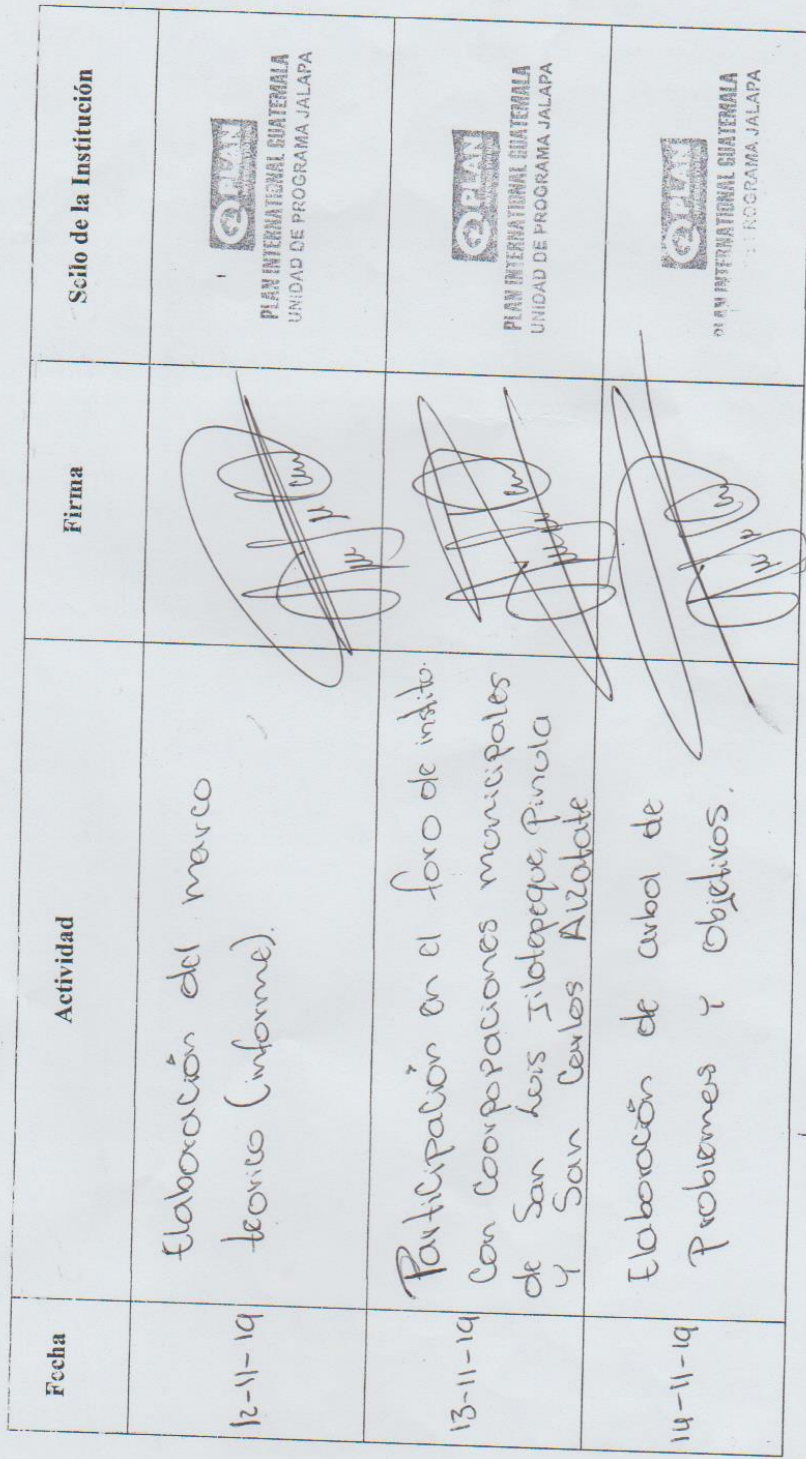 Fecha
Actividad
Firma
Sello de la Institución
12-11-19
Elaboración del marco
teorico (informe).
PLAN
PLAN INTERNATIONAL GUATEMALA
UNIDAD DE PROGRAMA JALAPA
13-11-19
Participación en el foro de instito.
Con Coorporaciones municipales
de San Luis Jilotepeque, Pinula
y San Carlos Alzatate
PLAN
PLAN INTERNATIONAL GUATEMALA
UNIDAD DE PROGRAMA JALAPA
14-11-19
Elaboración de arbol de
Problemas y Objetivos.
PLAN
PLAN INTERNATIONAL GUATEMALA
PROGRAMA JALAPA